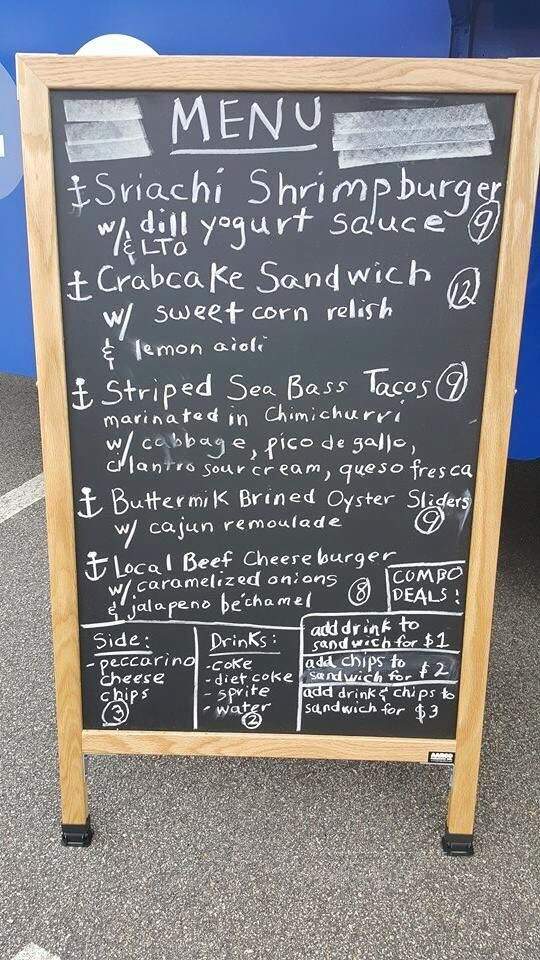 MENU
Sriachi Shrimpburger
w/ dill yogurt sauce 9
& LTO
Crabcake Sandwich 12
w/ sweet corn relish
& lemon aioli
Striped Sea Bass Tacos 9
marinated in Chimichurri
w/ cabbage, pico de gallo,
cilantro sour cream, queso fresca
Buttermilk Brined Oyster Sliders
w/ cajun remoulade 9
Local Beef Cheeseburger
w/ caramelized onions 8
& jalapeno béchamel
COMBO
DEALS!
Side:
- peccarino
cheese
chips
3
Drinks:
- coke
- diet coke
- sprite
- water
2
add drink to
sandwich for $1
add chips to
sandwich for $2
add drink & chips to
sandwich for $3